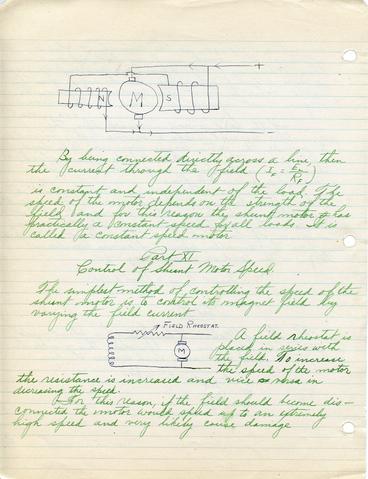 +
N
M
S
-
By being connected directly across a line, then
the current through the field (
is constant and independent of the load. The
speed of the motor depends on the strength of the
field and for this reason the shunt motor has
practically a constant speed for all loads. It is
called a constant speed motor
Part XI
Control of Shunt Motor Speed
The simplest method of controlling the speed of the
shunt motor is to control its magnet field by
varying the field current
FIELD RHEOSTAT.
M
A field rheostat is
placed in series with
the field. To increase
the speed of the motor
the resistance is increased and vice versa in
decreasing the speed.
For this reason, if the field should become dis-
connected the motor would speed up to an extremely
high speed and very likely cause damage